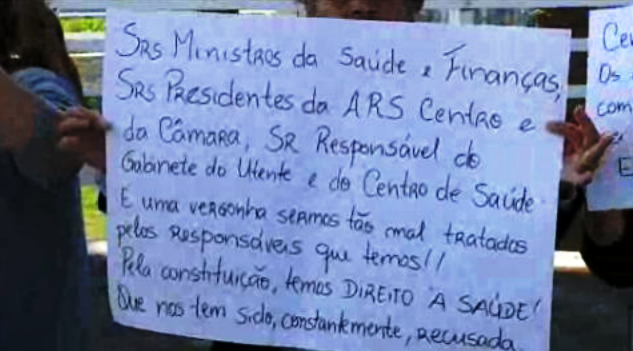 Srs Ministros da Saúde e Finanças,
Srs Presidentes da ARS Centro e
da Câmara, Sr Responsável do
Gabinete do Utente e do Centro de Saúde
É uma vergonha sermos tão mal tratados
pelos responsáveis que temos!!
Pela constituição, temos DIREITO À SAÚDE!
Que nos tem sido, constantemente, recusada.
Os
com
E